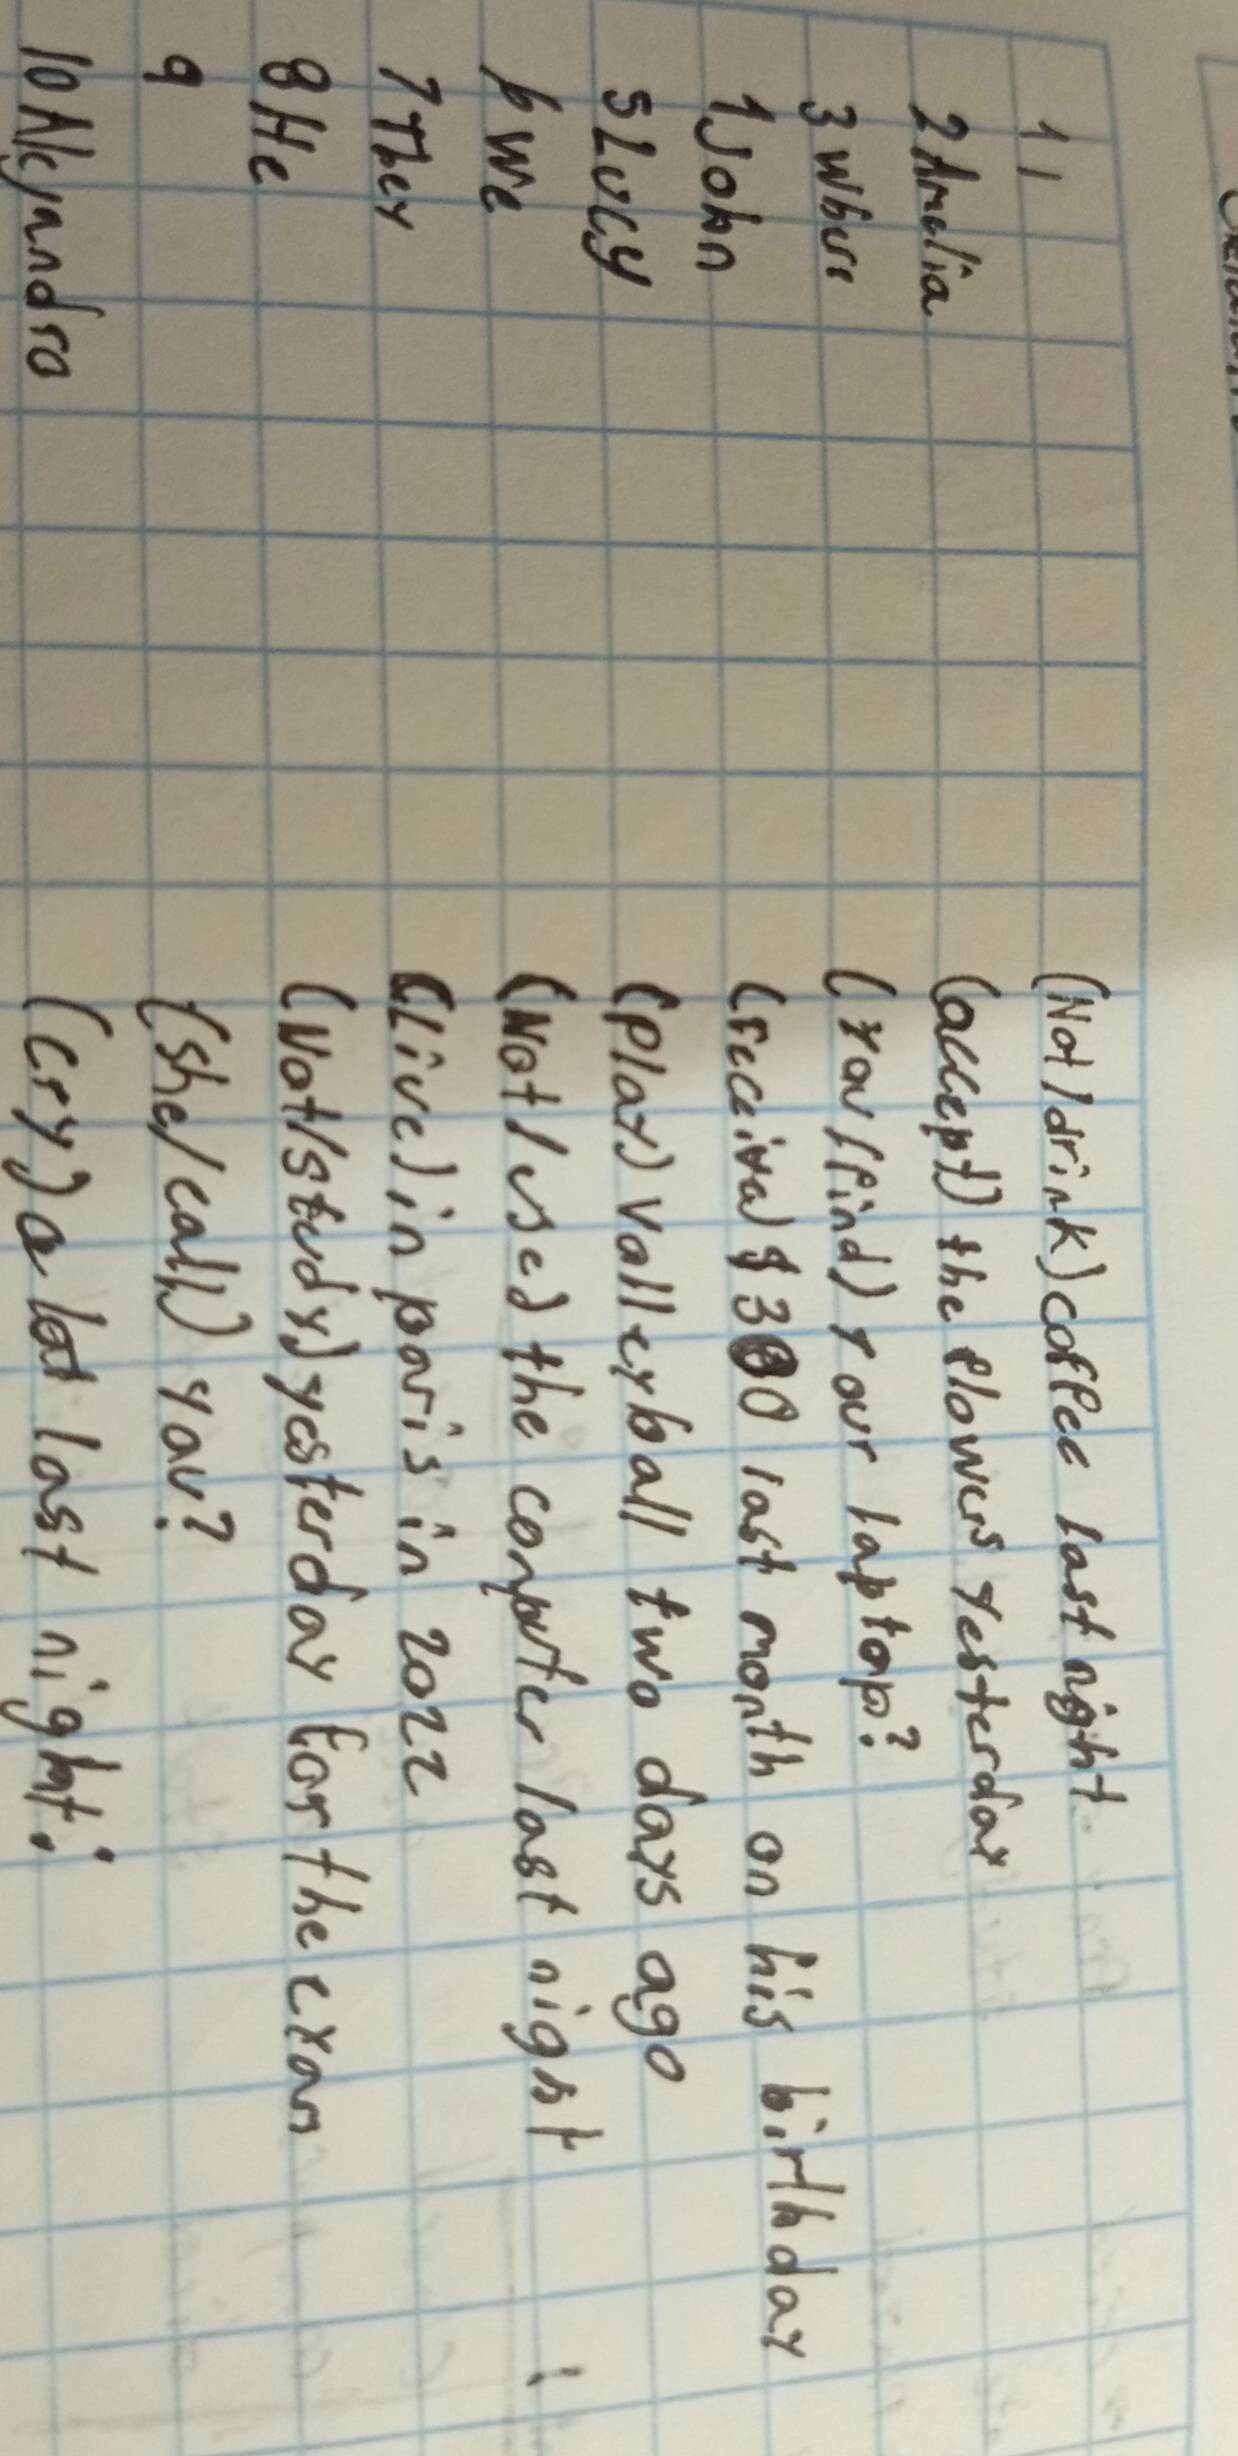 1 I (Not/drink) coffee last night.
2 Amelia (accept) the flowers yesterday
3 (you/find) your laptop?
1 John (receive) $300 last month on his birthday
5 Lucy (play) valleyball two days ago
6 we (Not/use) the computer last night
7 They (Live) in paris in 2022
8 He (Not/study) yesterday for the exam
9 (she/call) you?
10 Alejandro (cry) a lot last night.